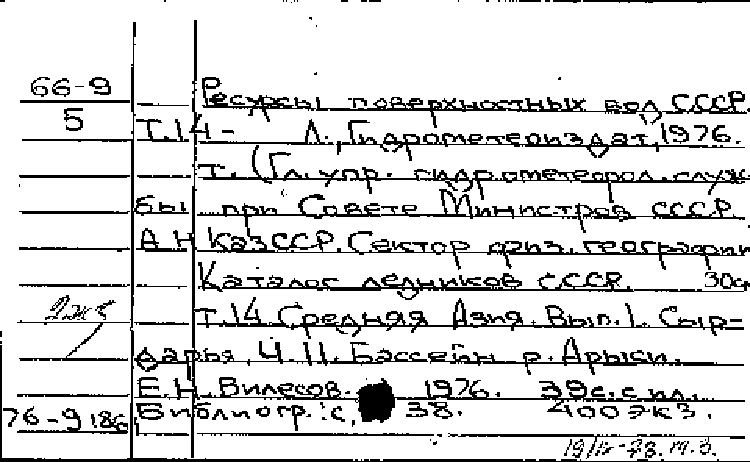 66-9
5
Ресурсы поверхностных вод СССР.
Т.14- Л., Гидрометеоиздат, 1976.
т. (Гл. упр. гидрометеорол. служ
бы при Совете Министров СССР
АН КазССР. Сектор физ. географии
Каталог ледников СССР. 30
2жб
т.14 Средняя Азия. Вып. 1. Сыр-
дарья, Ч. 11. Бассейн р. Арыси.
Е.Н. Вилесов. 1976. 39с. с ил.
76-9186 Библиогр.: с. 38. 400экз.